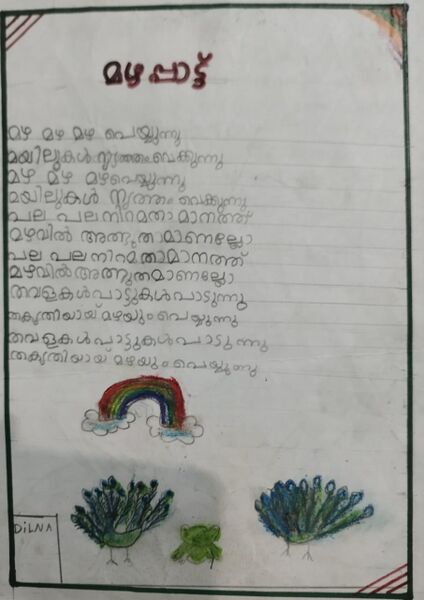 മഴപ്പാട്ട്
മഴ മഴ മഴ പെയ്യുന്നു
മയിലുകൾ നൃത്തം വെക്കുന്നു
മഴ മഴ മഴപെയ്യുന്നു
മയിലുകൾ നൃത്തം വെക്കുന്നു
പല പലനിറമതാ മാനത്ത്
മഴവിൽ അത്ഭുതാമാണല്ലോ
പല പലനിറമതാമാനത്ത്
മഴവിൽഅത്ഭുതമാണല്ലോ
തവളകൾപാട്ടുകൾപാടുന്നു
തകൃതിയായ് മഴയും പെയ്യുന്നു
തവളകൾപാട്ടുകൾപാടുന്നു
തകൃതിയായ് മഴയും പെയ്യുന്നു
DiLNA